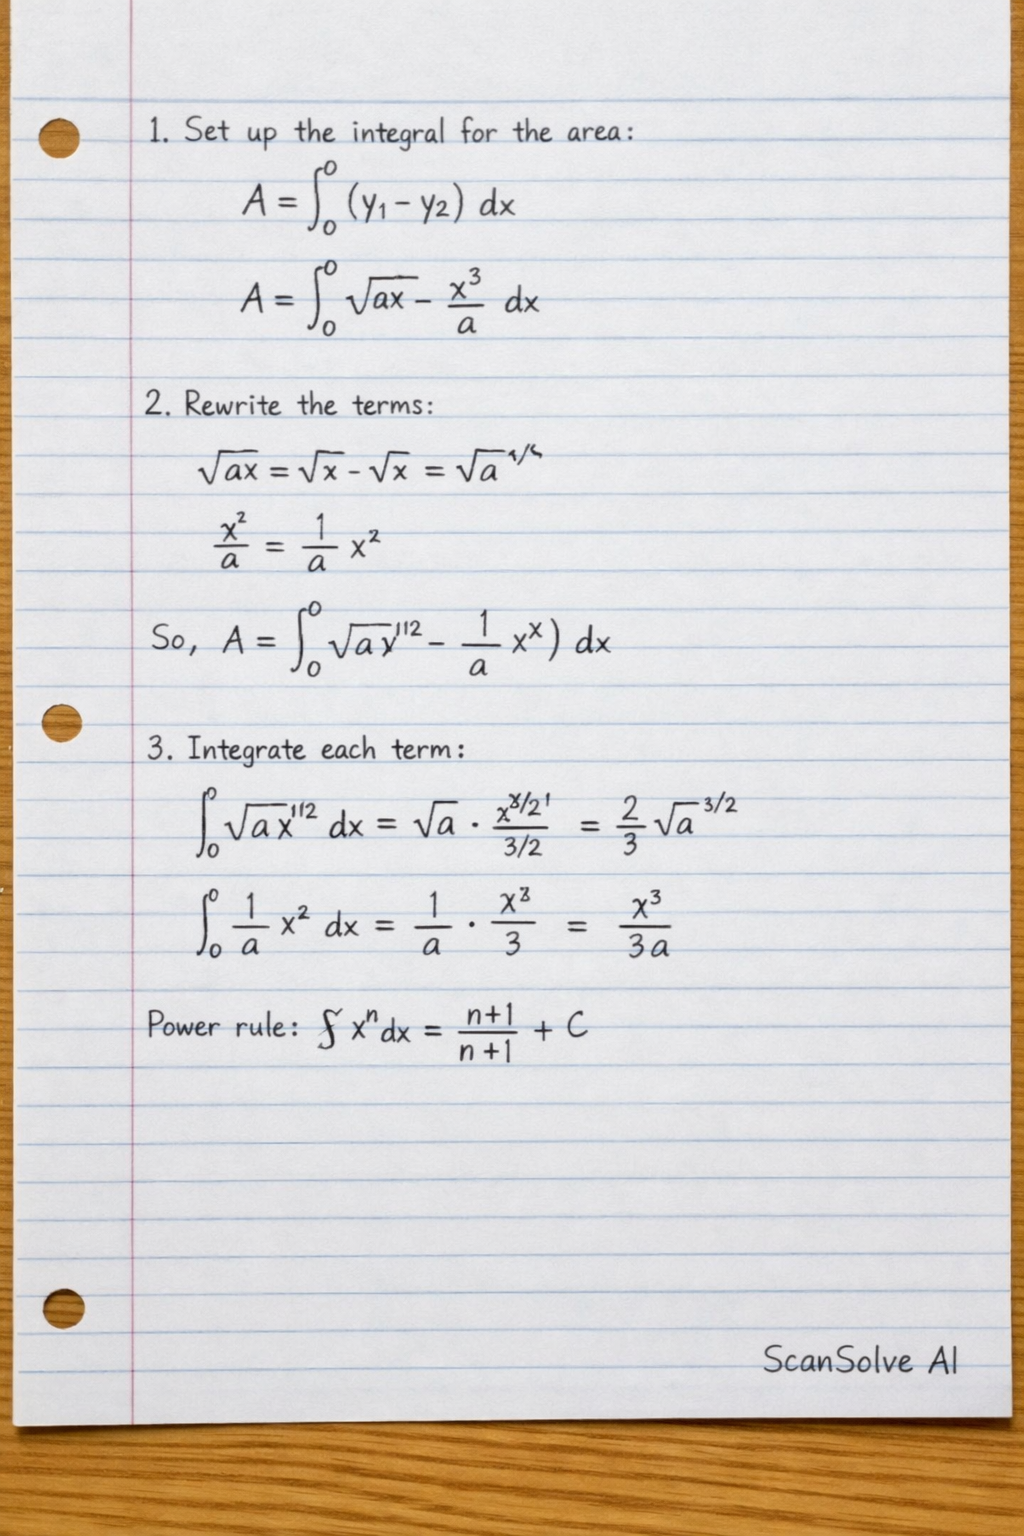 1. Set up the integral for the area:
A = ∫₀⁰ (y₁ - y₂) dx
A = ∫₀⁰ √ax - x³/a dx
2. Rewrite the terms:
√ax = √x - √x = √a
x²/a = 1/a x²
So, A = ∫₀⁰ √a x^112 - 1/a x^x) dx
3. Integrate each term:
∫₀⁰ √a x^112 dx = √a · /3/2 = 2/3 √a^3/2
∫₀⁰ 1/a x² dx = 1/a · x³/3 = x³/3a
Power rule: ∫ xⁿ dx = n+1/n+1 + C
ScanSolve AI